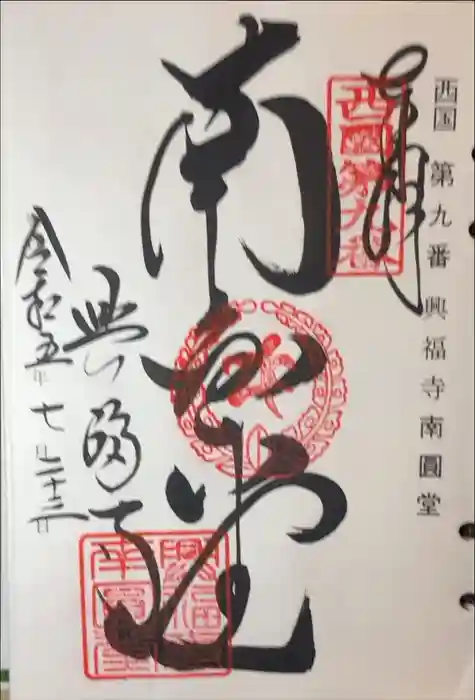 西国 第九番 興福寺南圓堂
奉拝
西國第九番
南円堂
興福寺
令和五年七月二十三日